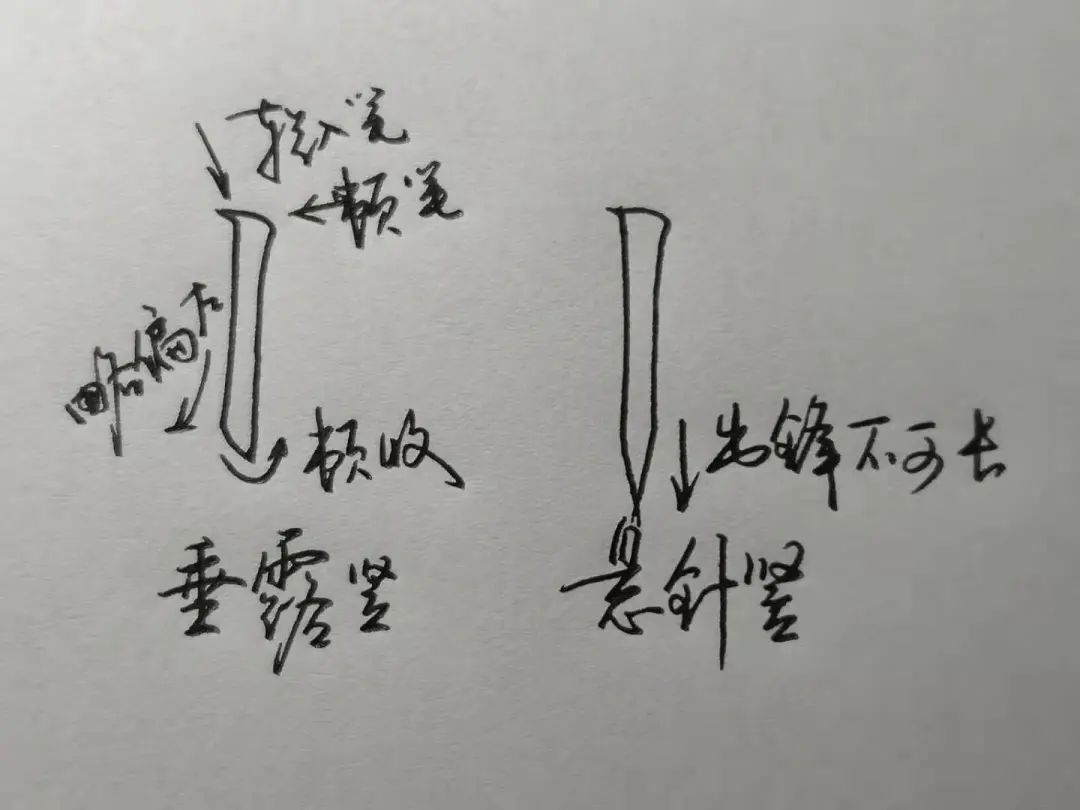 轻入笔
顿笔
略偏左
顿收
出锋不可长
垂露竖
悬针竖